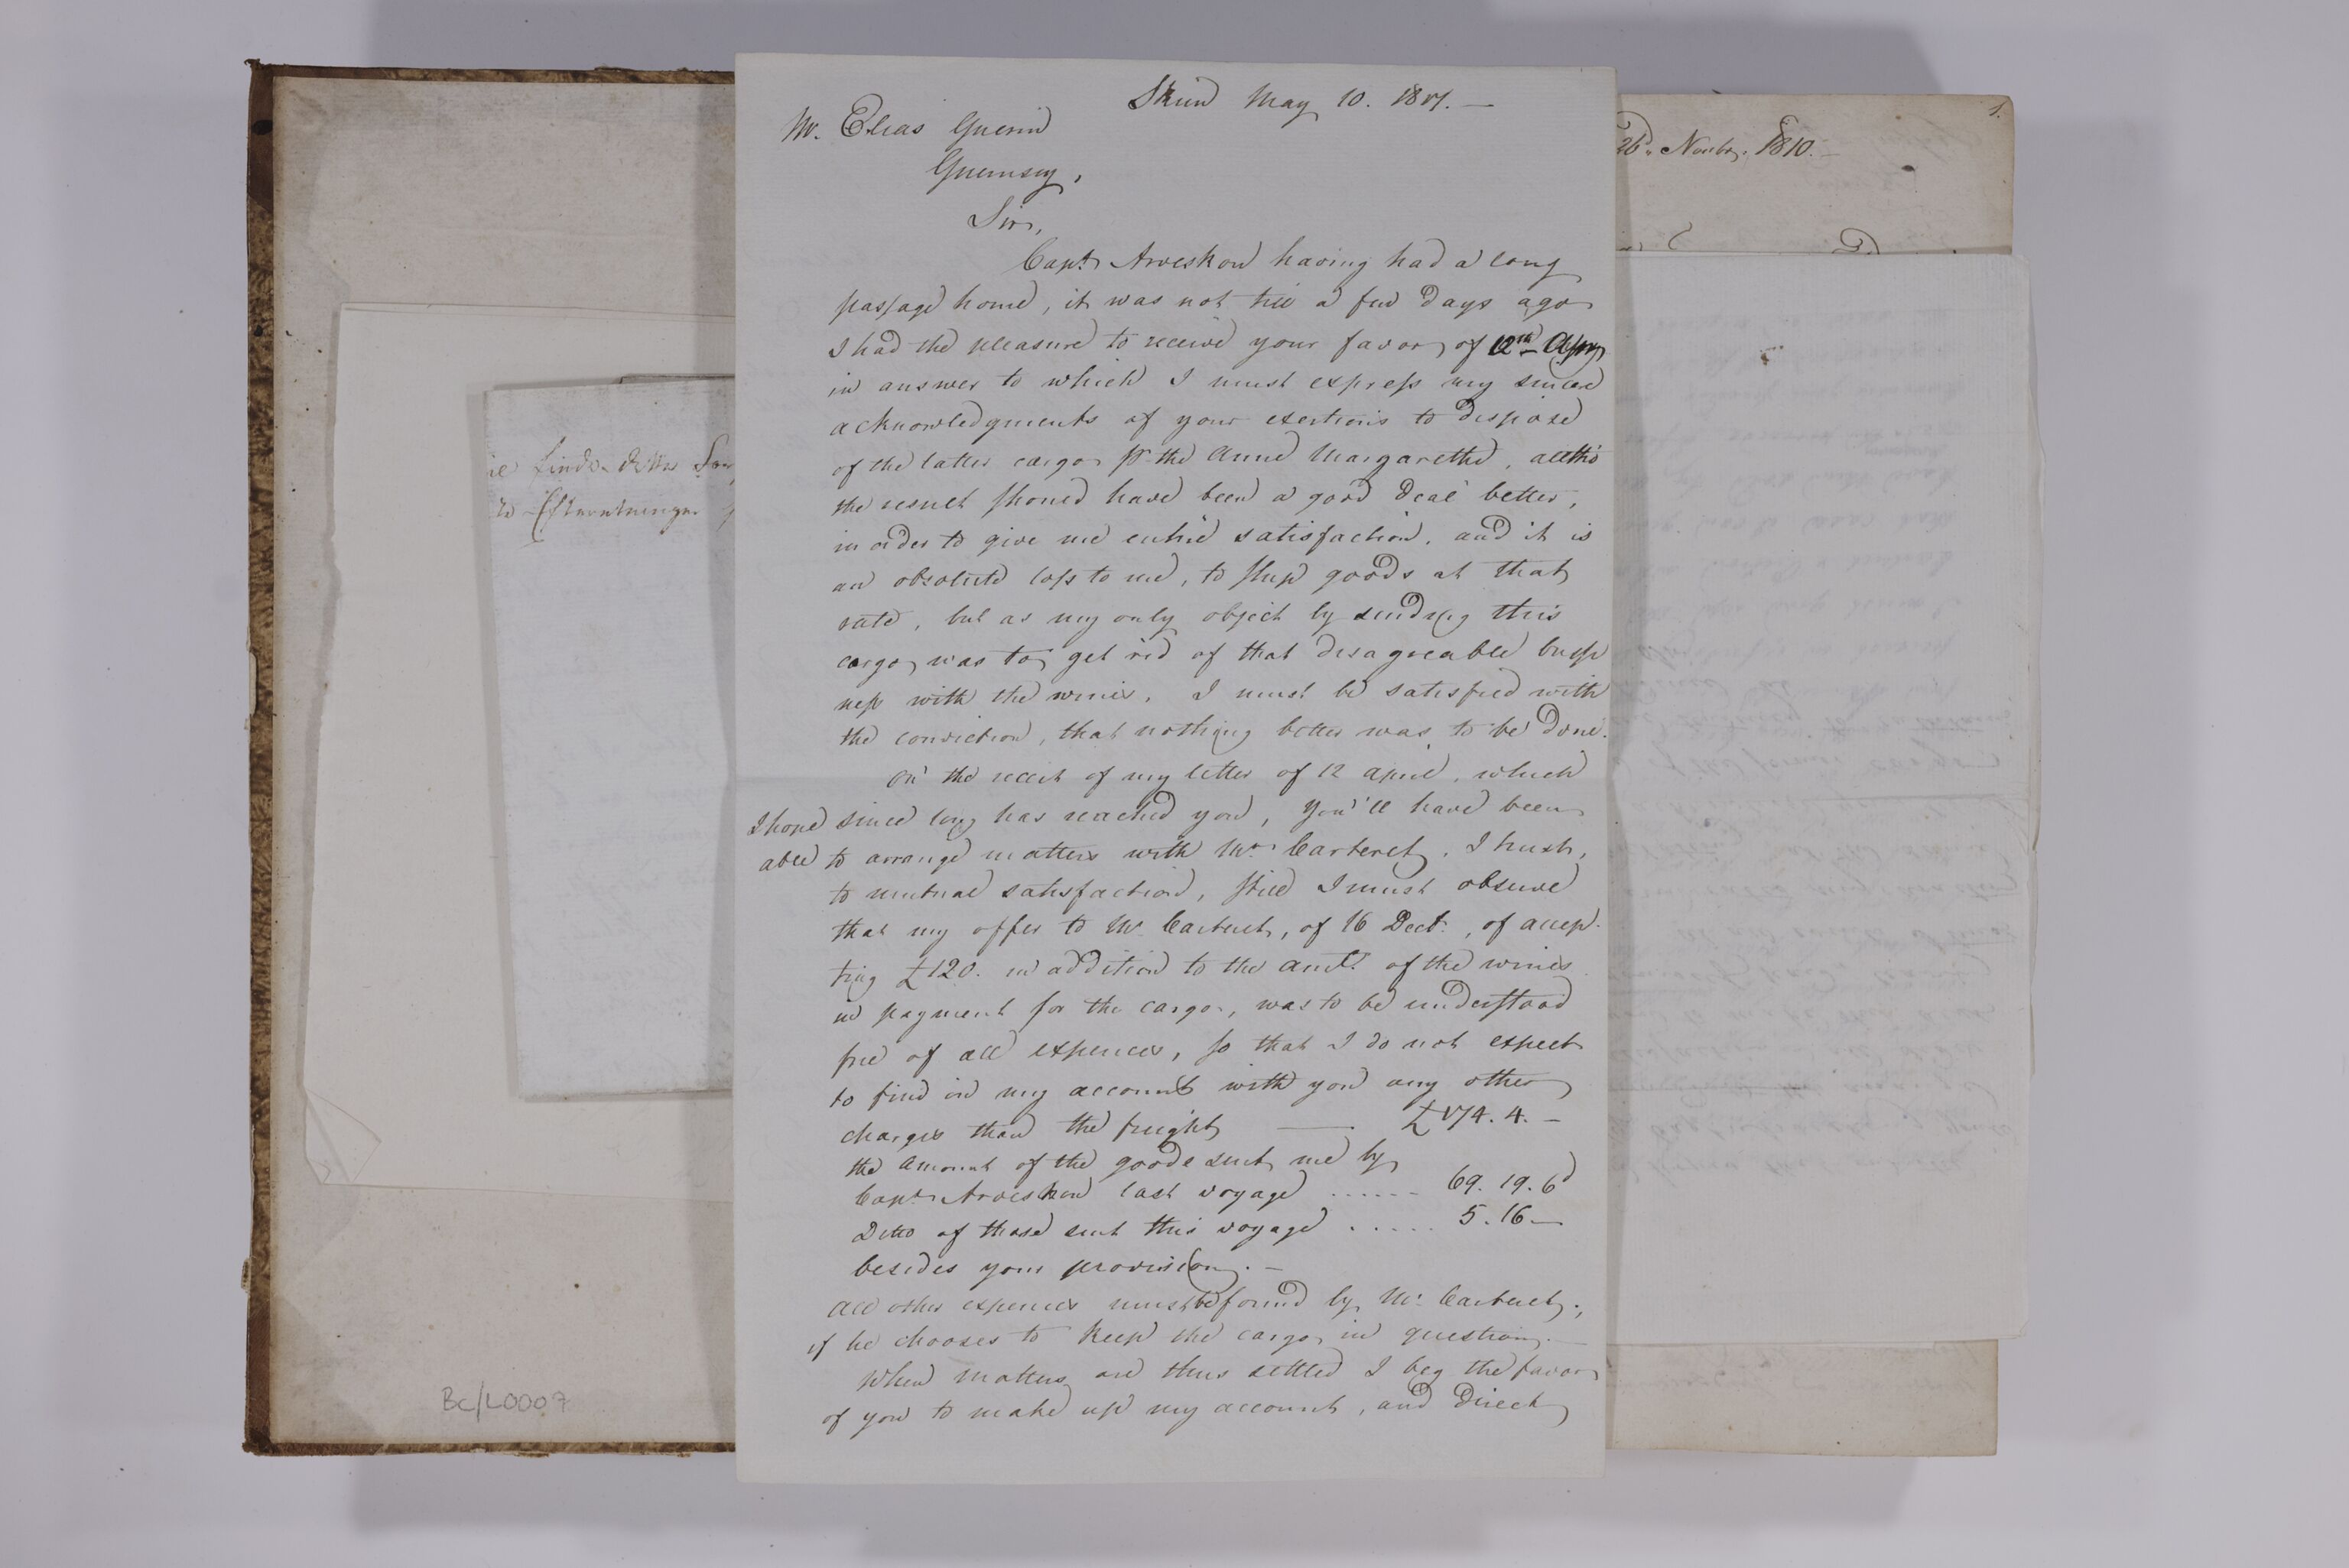 Skien May 10. 1807. —
Mr. Elias Guerin
Guernsey,
Sir,
Capt. Arveskow having had a long
passage home, it was not till a few days ago
I had the pleasure to receive your favor of 12th
in answer to which I must express my sincere
acknowledgments of your exertions to dispose
of the latter cargo pr the Anne Margarethe, allthó
the result should have been a good deal better,
in order to give me entire satisfaction, and it is
an obsolute loss to me, to ship goods at that
rate, but as my only object by sending this
cargo, was to get rid of that disagreable busi
ness with the wines, I must be satisfied with
the conviction, that nothing better was to be done.
On the receit of my letter of 12 april, which
I hope since long has reached you, you'll have been
able to arrange matters with Mr. Carteret, I trust,
to mutual satisfaction, still I must observe
that my offer to Mr. Carteret, of 16 Decbr., of accep-
ting £120. in addition to the amt. of the wines
in payment for the cargo, was to be understood
free of all expences, so that I do not expect
to find in my account with you any other
charges than the freight —— £174. 4. –
the amount of the goods sent me by
Capt. Arveskow last voyage ...... 69. 19. 6d
Ditto of those sent this voyage ..... 5. 16 —
besides your provision. —
All other expences must be found by Mr. Carteret,
if he chooses to keep the cargo in question. —
When matters are thus settled I beg the favor
of you to make up my account, and direct
26 Novbr. 1810. —
1.
finde dette
Efterretninger
Bc/L0007